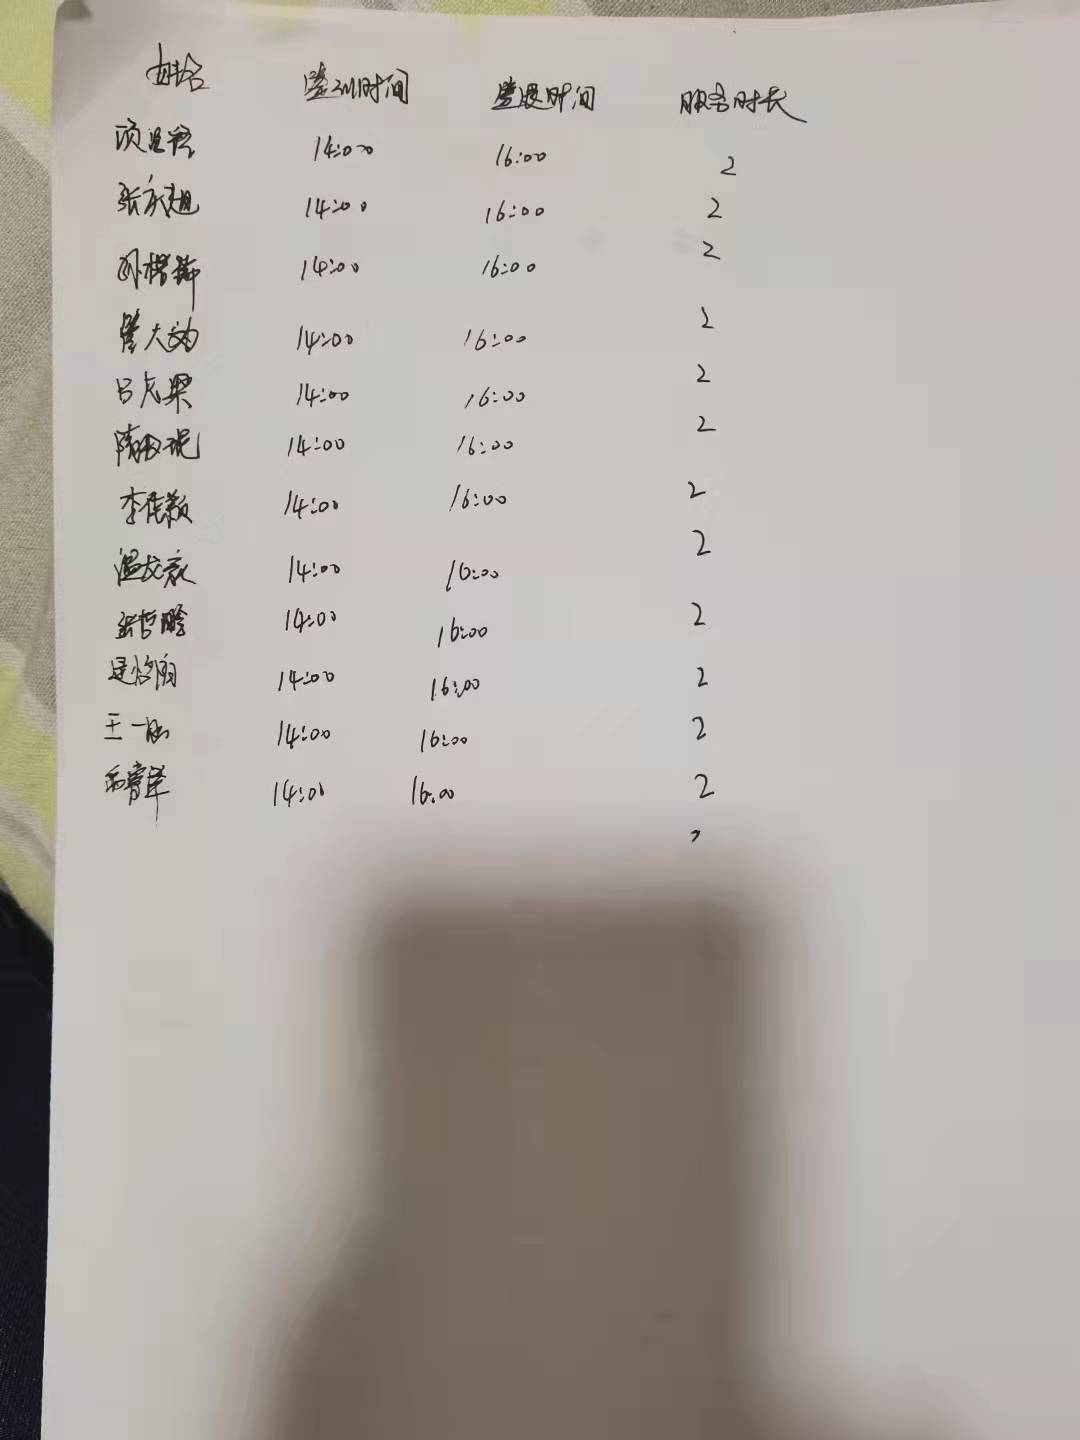 姓名 签到时间 签退时间 服务时长
14:00 16:00 2
张永超 14:00 16:00 2
14:00 16:00 2
14:00 16:00 2
吕虎 14:00 16:00 2
隋 14:00 16:00 2
李佳颖 14:00 16:00 2
温 14:00 16:00 2
张哲 14:00 16:00 2
14:00 16:00 2
王一 14:00 16:00 2
14:00 16:00 2